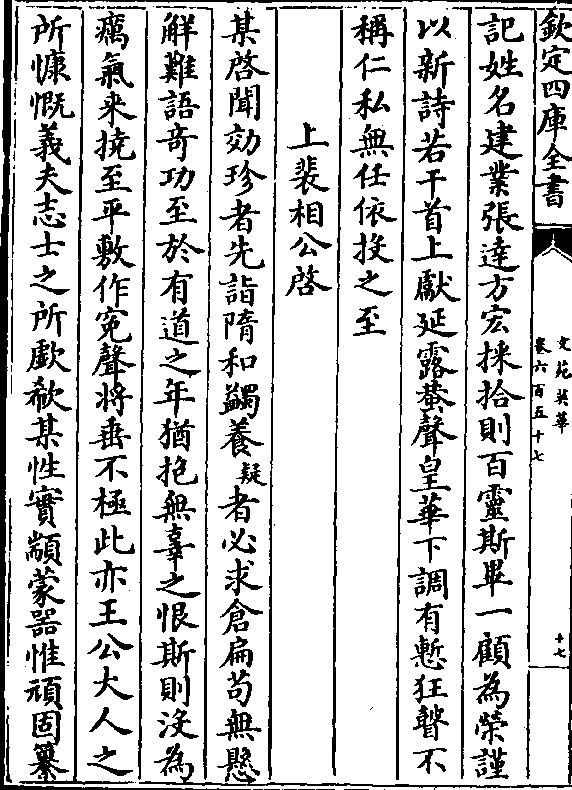 欽定四庫全書
文苑英華
卷六百五十七
十七
記姓名建業張逹方宏採拾則百靈斯畢一顧為榮謹
以新詩若干首上獻延露蛬聲皇華下調有慙狂瞽不
稱仁私無任依投之至
上裴相公啓
某啓聞効珍者先詣隋和蠲養疑者必求倉扁苟無懸
解難語竒功至於有道之年猶抱無辜之恨斯則没為
癘氣来撓至平敷作寃聲将垂不極此亦王公大人之
所慷慨義夫志士之所歔欷某性實顓蒙器惟頑固纂